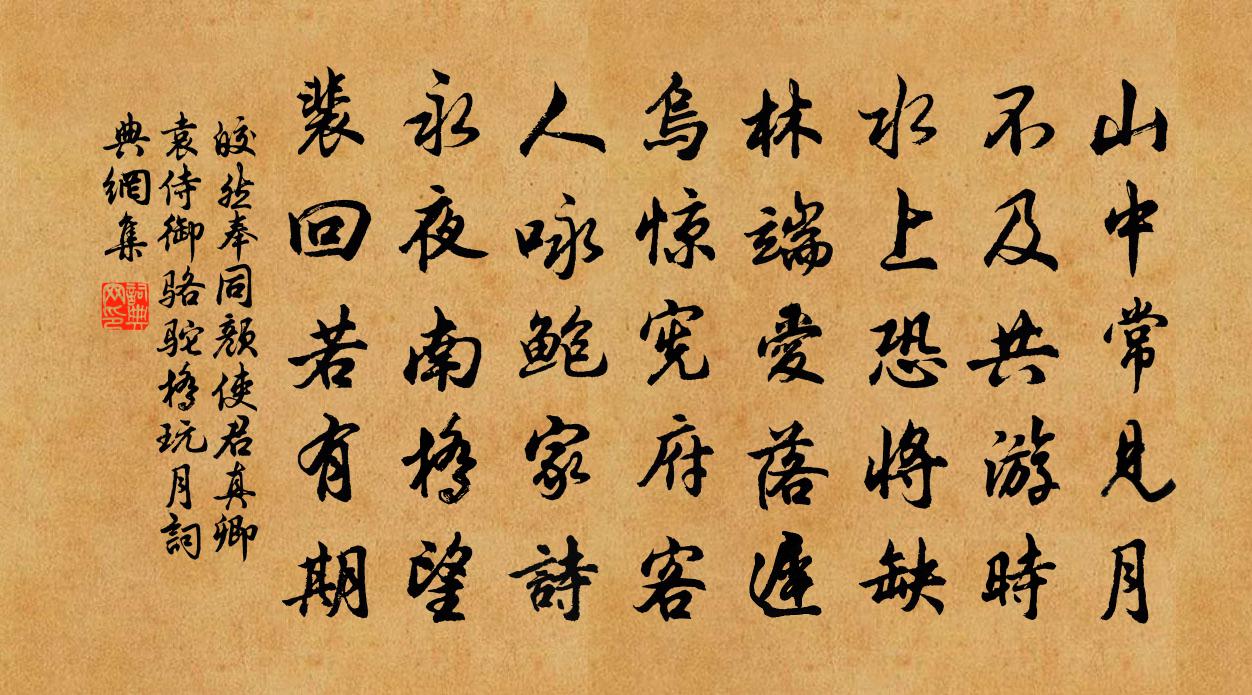 山中常見月
不及共游時
水上恐將缺
林端愛落遲
烏惊宪府客
人咏鮑家詩
永夜南橋望
裴回若有期
皎然奉同顏使君真卿
袁侍御骆駝橋玩月詞
典網集
詞典網印